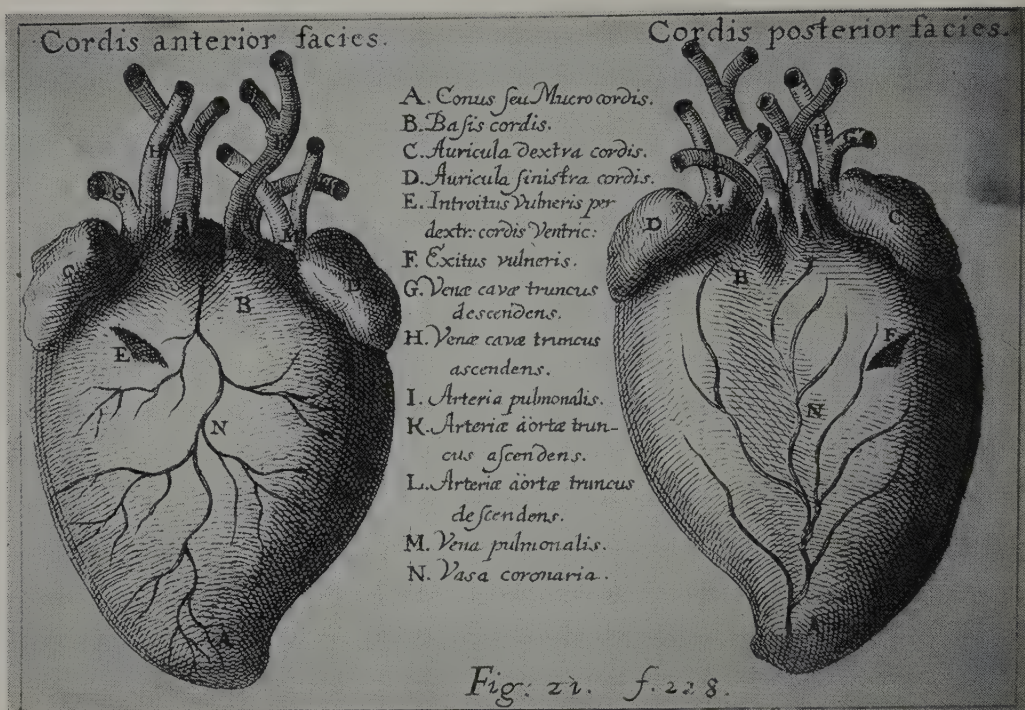 Cordis anterior facies.
Cordis posterior facies.
A. Conus ſeu Mucro cordis.
B. Baſis cordis.
C. Auricula dextra cordis.
D. Auricula ſiniſtra cordis.
E. Introitus vulneris per
dextr: cordis Ventric:
F. Exitus vulneris.
G. Venæ cavæ truncus
descendens.
H. Venæ cavæ truncus
ascendens.
I. Arteria pulmonalis.
K. Arteriæ äortæ trun-
cus aſcendens.
L. Arteriæ äortæ truncus
deſcendens.
M. Vena pulmonalis.
N. Vasa coronaria.
G
H
I
K
L
M
C
D
B
E
N
A
K
L
M
I
H
G
D
C
B
F
N
A
Fig: 21. f. 228.